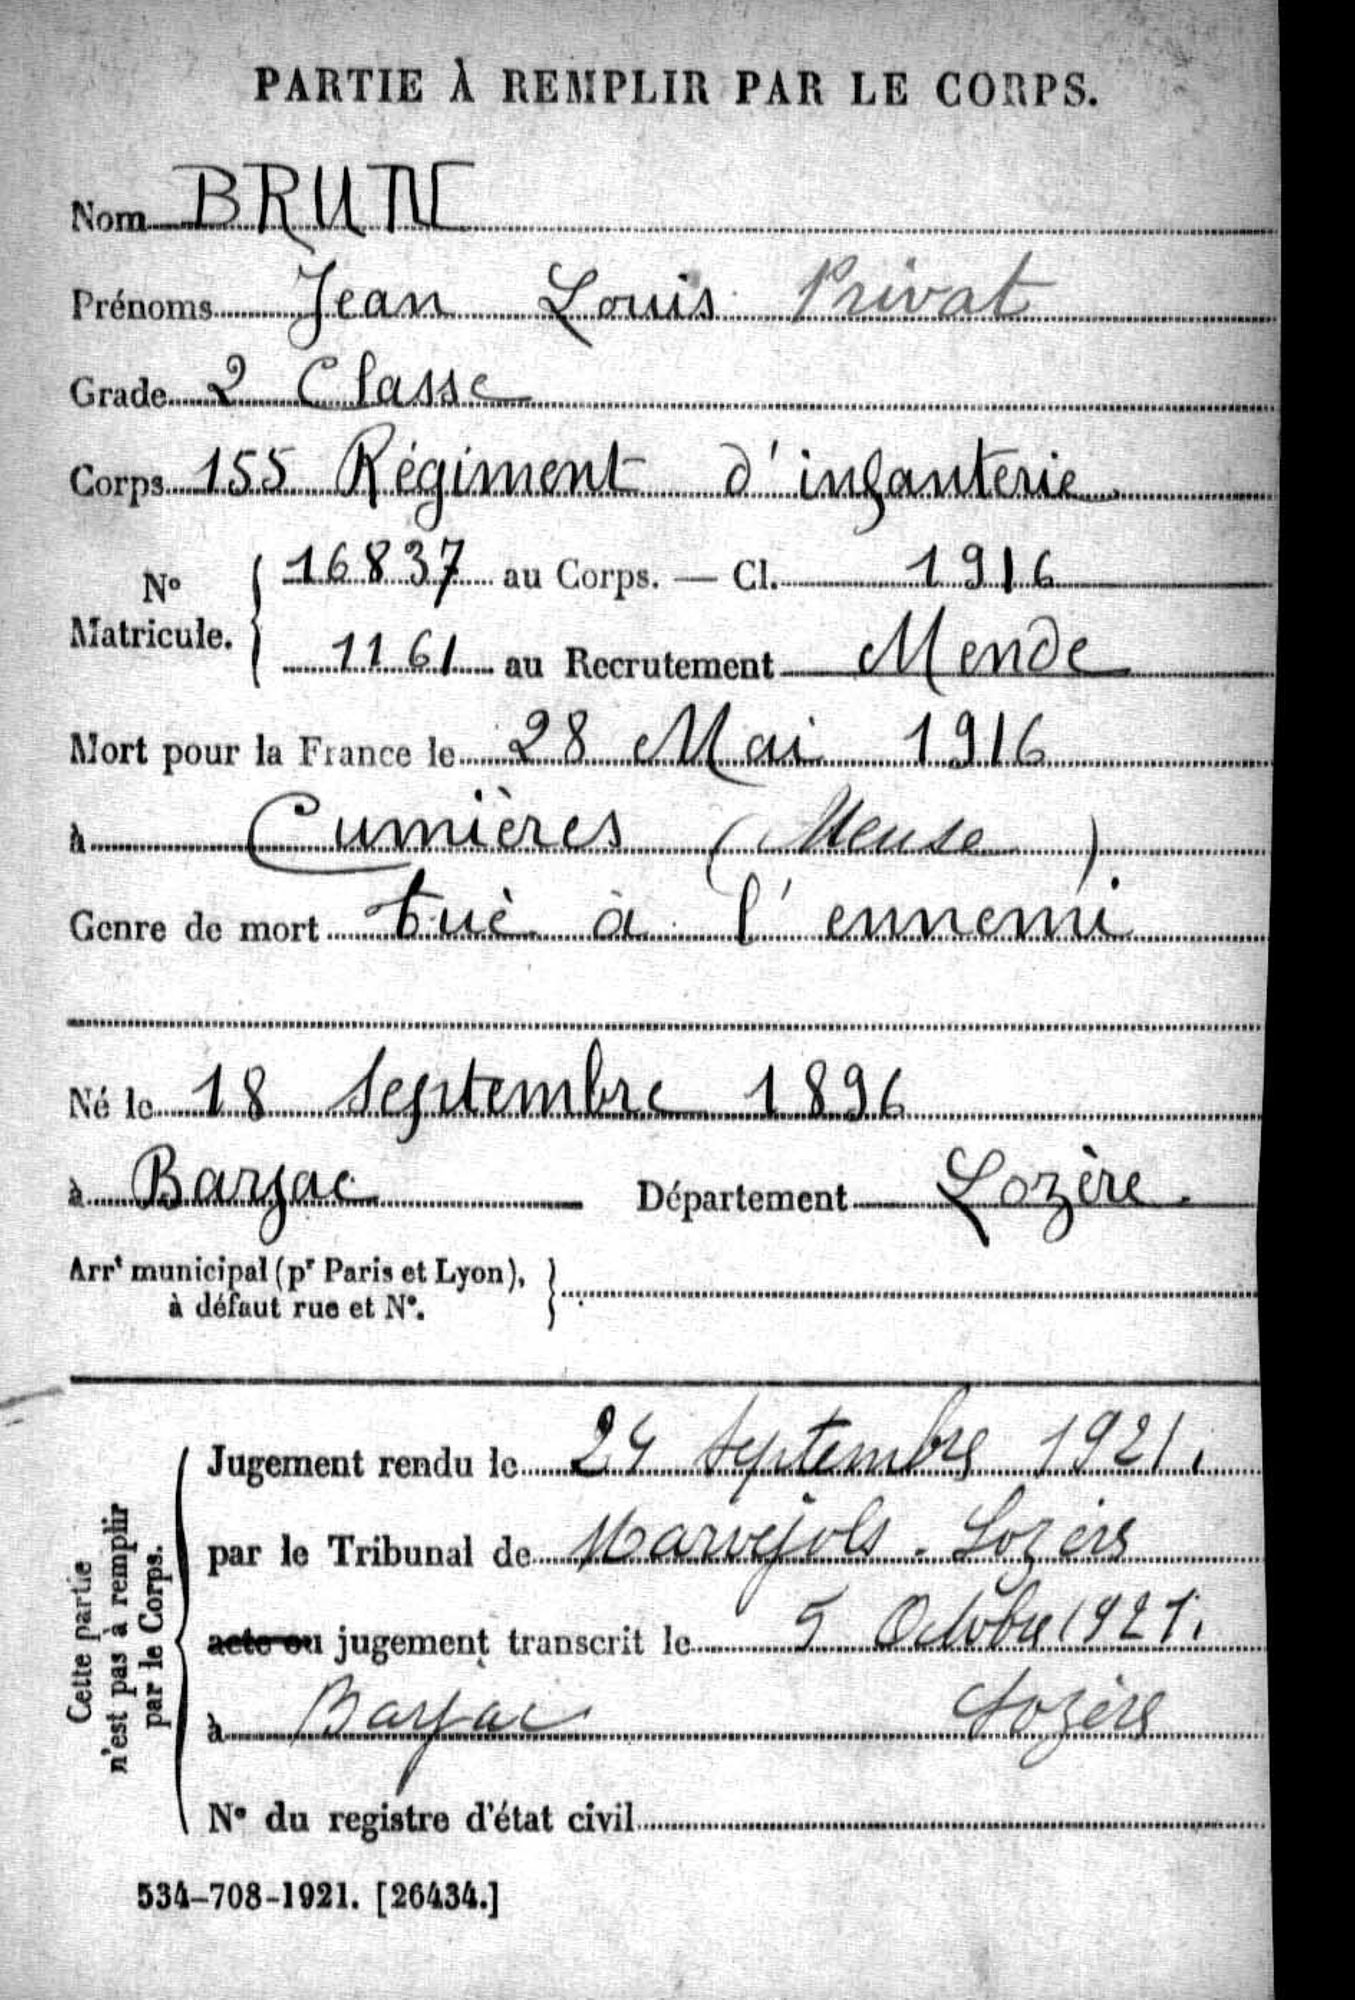 PARTIE À REMPLIR PAR LE CORPS.
Nom BRUN
Prénoms Jean Louis Privat
Grade 2 Classe
Corps 155 Régiment d'infanterie
N° Matricule. { 16837 au Corps. — Cl. 1916
1161 au Recrutement Mende
Mort pour la France le 28 Mai 1916
à Cumières (Meuse)
Genre de mort tué à l'ennemi
Né le 18 Septembre 1896
à Barjac Département Lozère.
Arrt municipal (pr Paris et Lyon), }
à défaut rue et N°.
Cette partie
n'est pas à remplir
par le Corps.
Jugement rendu le 24 Septembre 1921.
par le Tribunal de Marvejols. Lozère
acte ou jugement transcrit le 5 Octobre 1921.
à Barjac Lozère
N° du registre d'état civil
534-708-1921. [26434.]